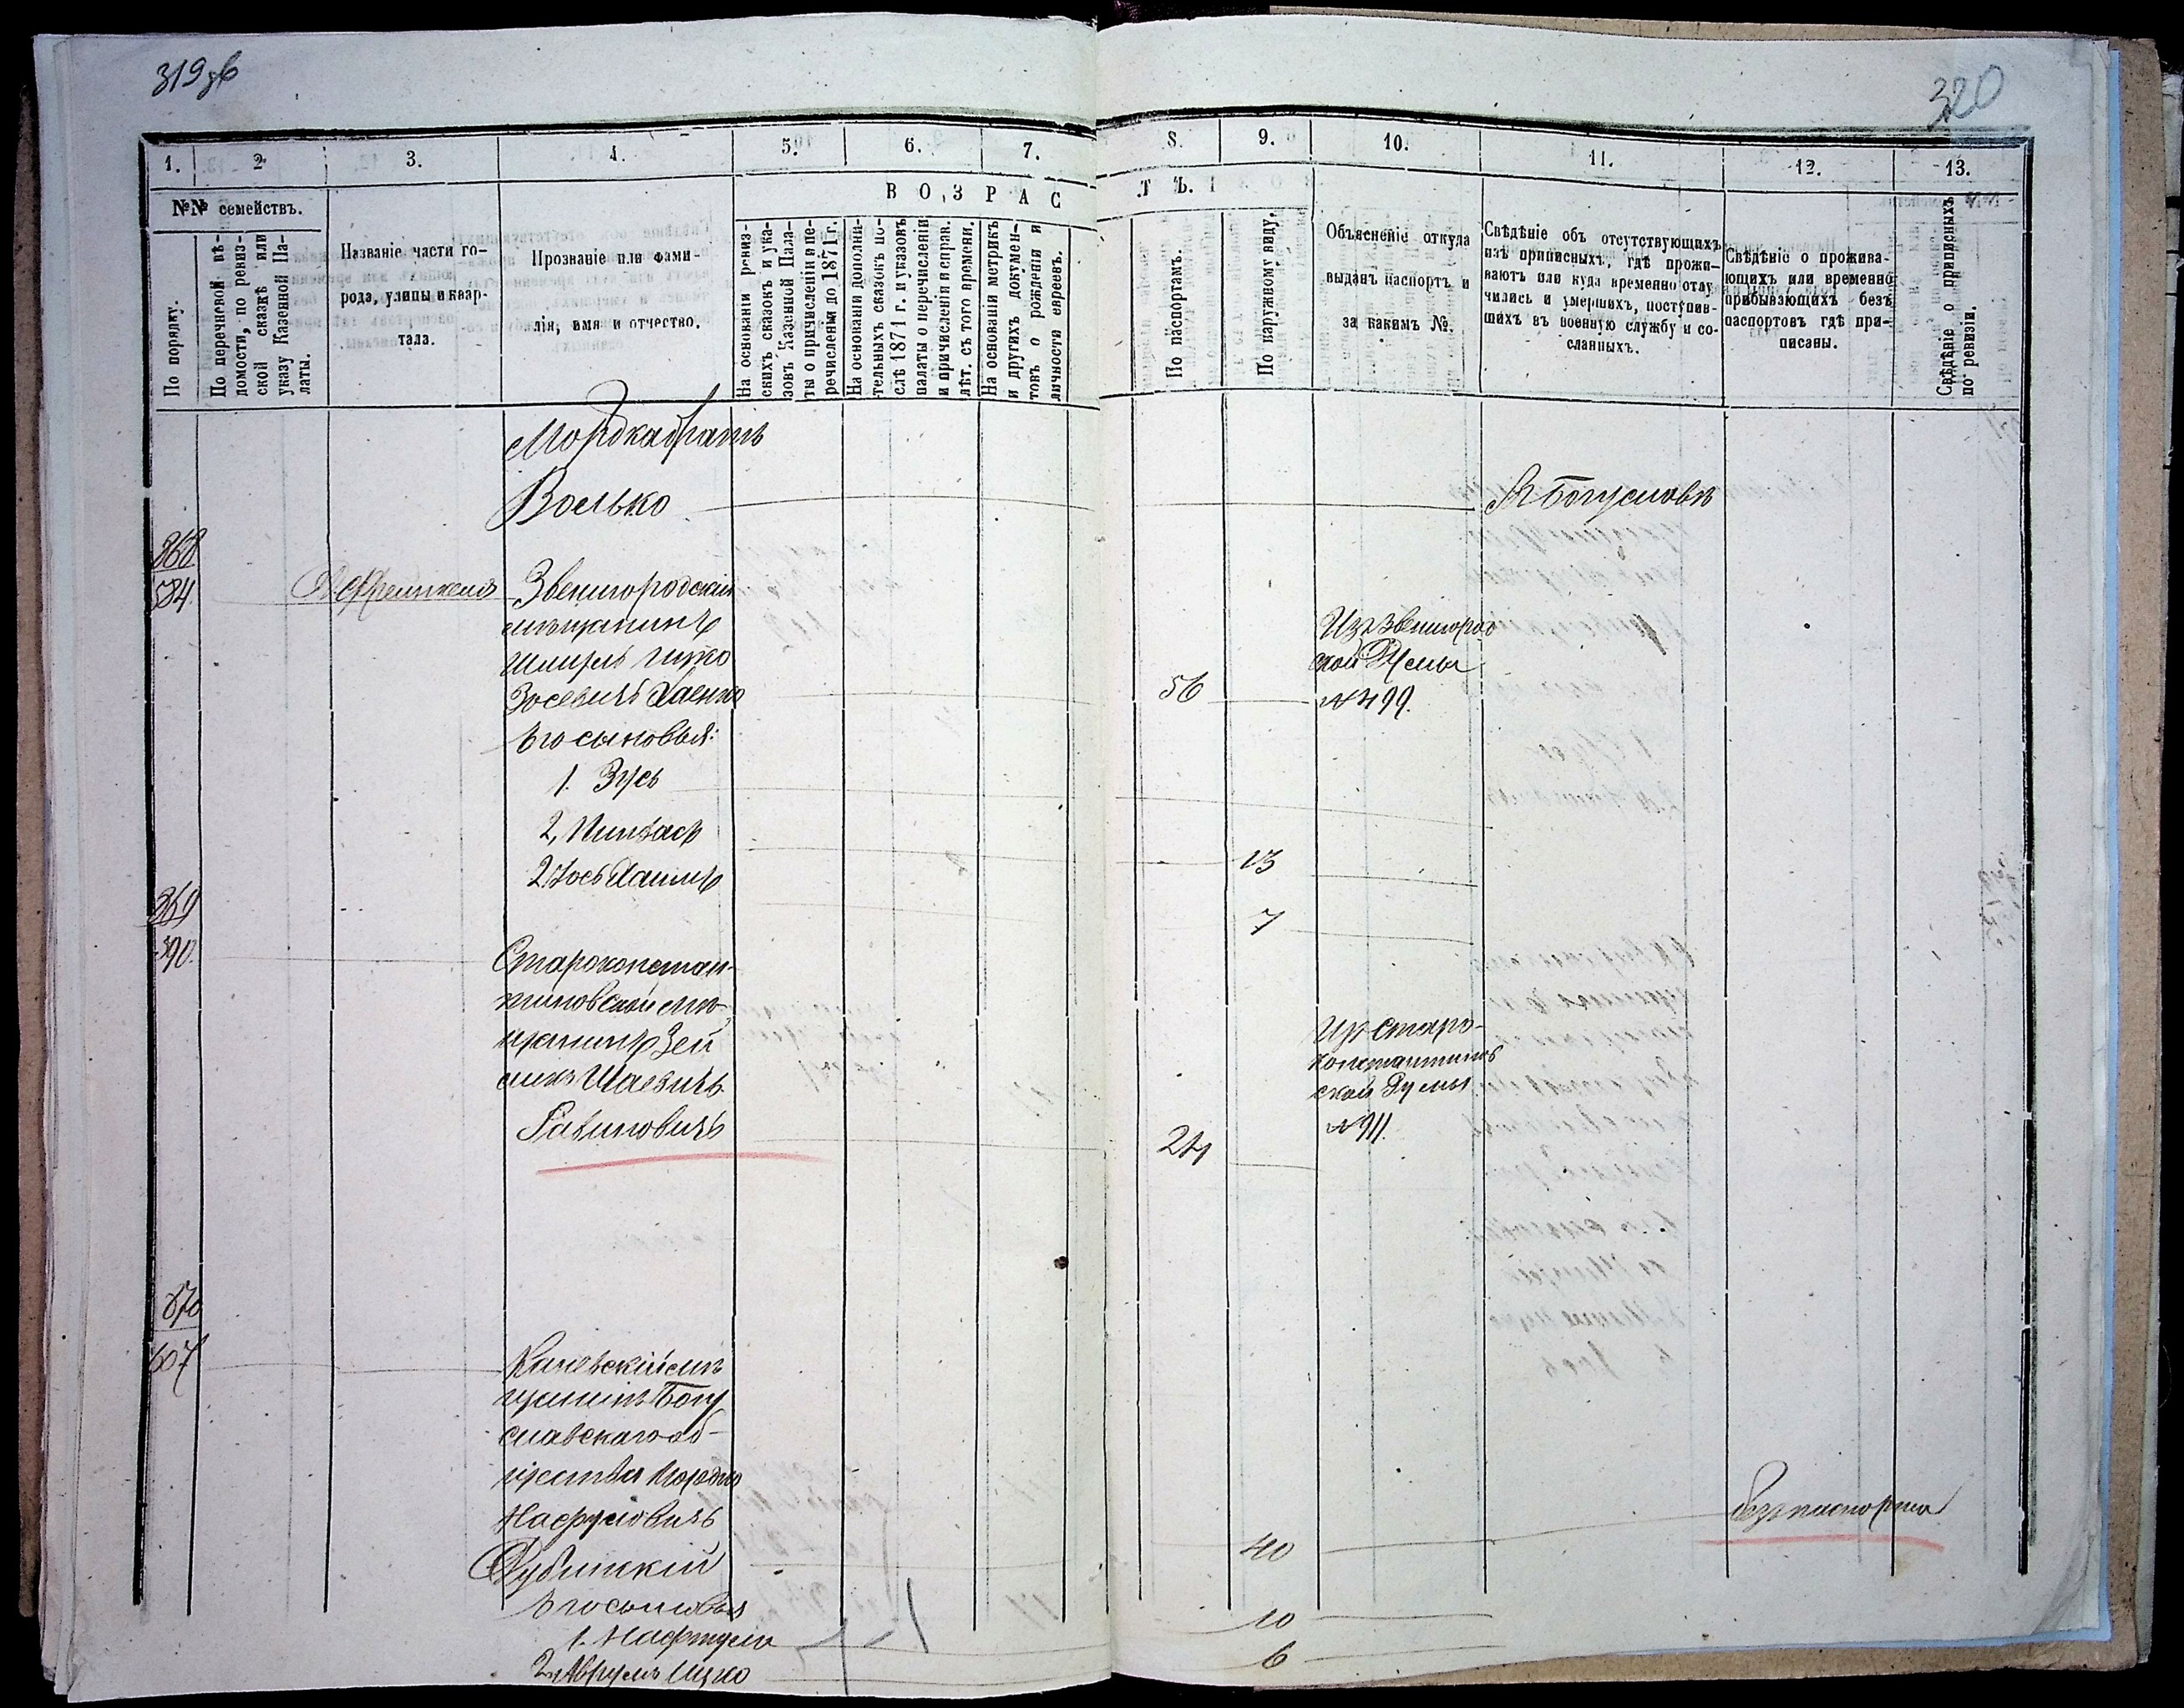 319 об
320
1.
2
3.
4.
5.
6.
7.
8.
9.
10.
11.
12.
13.
№№ семействъ.
По порядку.
По перечневой вѣ-
домости, по ревиз-
ской сказкѣ или
указу Казенной Па-
латы.
Названіе части го-
рода, улицы и квар-
тала.
Прозваніе или фами-
лія, имя и отчество.
ВОЗРАС
На основаніи ревиз-
скихъ сказокъ и ука-
зовъ Казенной Пала-
ты о причисленіи и пе-
речисленіи до 1871 г.
На основаніи дополни-
тельныхъ сказокъ по-
слѣ 1871 г. и указовъ
палаты о перечисленіи
и причисленіи и справ.
лѣт. съ того времени.
На основаніи метрикъ
и другихъ докумен-
товъ о рожденіи и
личности евреевъ.
ТѢ.
По паспортамъ.
По наружному виду.
Объясненіе откуда
выданъ паспортъ и
за какимъ №.
Свѣдѣніе объ отсутствующихъ
изъ приписныхъ, гдѣ прожи-
ваютъ или куда временно отлу
чились и умершихъ, поступив-
шихъ въ военную службу и со-
сланныхъ.
Свѣдѣніе о прожива-
ющихъ или временно
прибывающихъ безъ
паспортовъ гдѣ при-
писаны.
Свѣдѣніе о приписныхъ
по ревизіи.
Мордка братъ
Волько
Въ Богуславѣ
868
584
Звенигородскій
мѣщанинъ
Шмуль Ицко
Зосевичъ
56
Изъ Звенигород
ской Думы
№ 499.
Его сыновья:
1. Зусь
2, Пинхасъ
13
2. Іось Хаимъ
7
869
590.
Старокостан-
тиновской мѣ-
щанинъ Зей
Шаевичъ
Рабиновичъ
24
Из Старо-
константинов
ской Думы
№ 911.
870
607
Каневскій мѣ
щанинъ Богу
славскаго об-
щества Мордко
Нафтуловичъ
Дубинскій
40
безъ паспорта
Его сыновья
1. Нафтула
10
2. Аврумъ Ицко
6